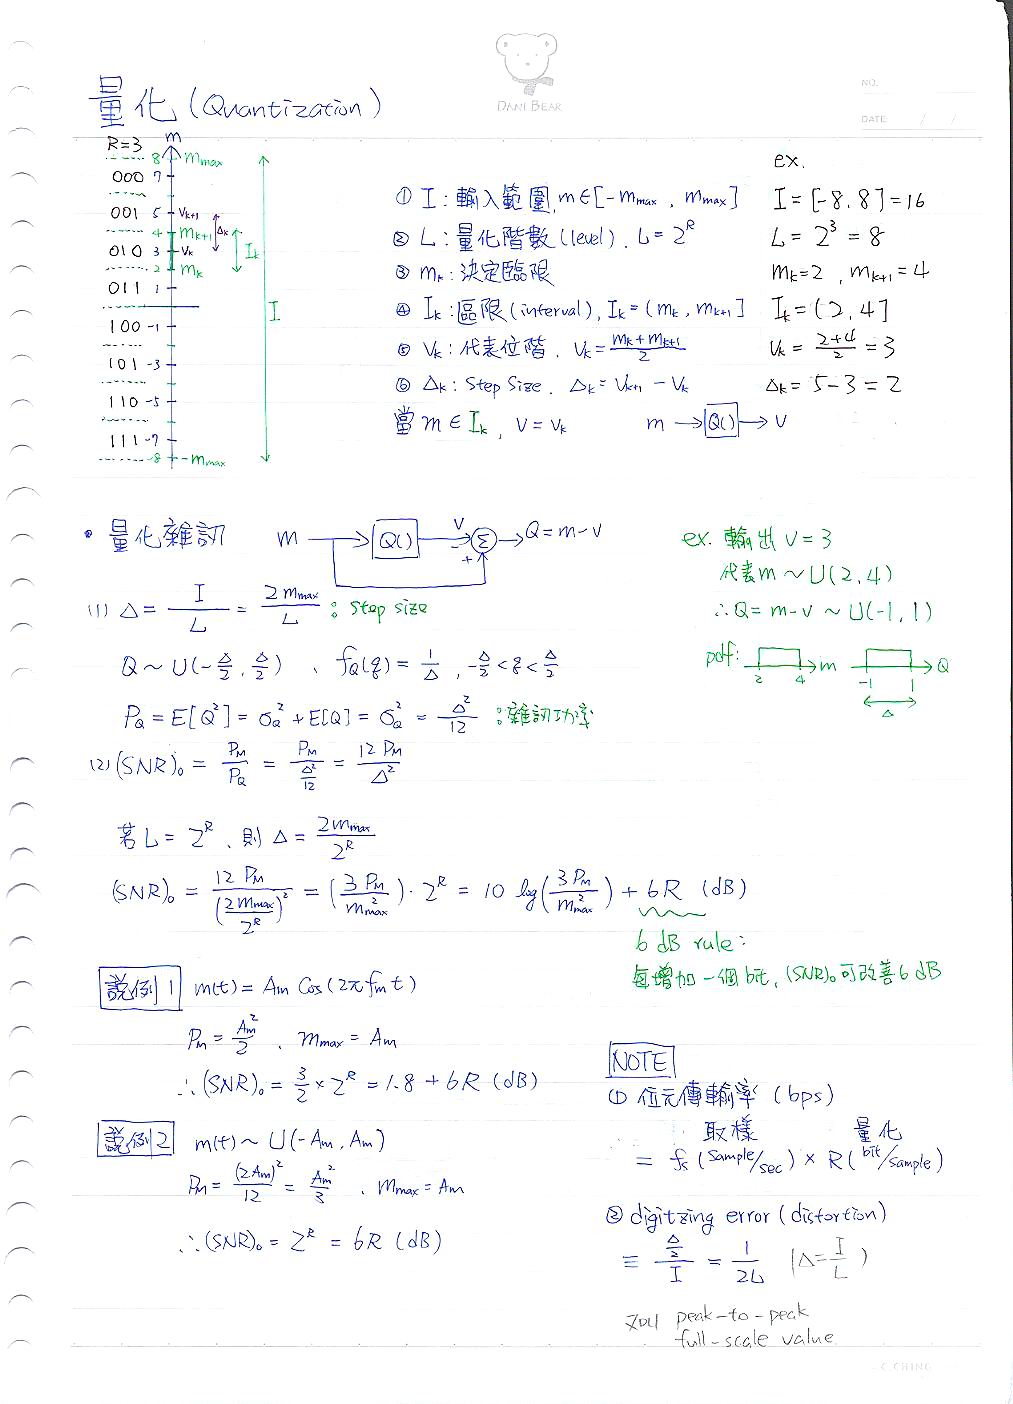 DANI BEAR
NO.
DATE / /
量化 (Quantization)
R=3 m
8 mmax
000 7
001 5 Vk+1
4 mk+1 Δk
010 3 Vk Ik
2 mk
011 1
I
100 -1
101 -3
110 -5
111 -7
-8 -mmax
① I : 輸入範圍, m∈[-mmax , mmax]
② L : 量化階數 (level) , L = 2^R
③ mk : 決定臨限
④ Ik : 區限 (interval) , Ik = (mk , mk+1]
⑤ Vk : 代表位階 , Vk = (mk + mk+1)/2
⑥ Δk : Step Size , Δk = Vk+1 - Vk
當 m ∈ Ik , V = Vk m → Q() → V
ex.
I = [-8, 8] = 16
L = 2^3 = 8
mk = 2 , mk+1 = 4
Ik = (2, 4]
Vk = (2+4)/2 = 3
Δk = 5-3 = 2
• 量化雜訊 m Q() V - + Σ Q = m-v
(1) Δ = I/L = 2mmax/L : Step size
Q ~ U(-Δ/2, Δ/2) 、 fQ(q) = 1/Δ , -Δ/2 < q < Δ/2
PQ = E[Q²] = σQ² + E[Q] = σQ² = Δ²/12 : 雜訊功率
ex. 輸出 V = 3
代表 m ~ U(2, 4)
∴ Q = m-v ~ U(-1, 1)
pdf: 2 4 m -1 1 Q
Δ
(2) (SNR)o = PM/PQ = PM/(Δ²/12) = 12 PM/Δ²
若 L = 2^R 、則 Δ = 2mmax/2^R
(SNR)o = 12 PM/(2mmax/2^R)² = (3 PM/mmax²) · 2^R = 10 log(3 PM/mmax²) + 6R (dB)
6 dB rule :
每增加一個 bit, (SNR)o 可改善 6 dB
說例 1 m(t) = Am Cos(2πfmt)
PM = Am²/2 、 mmax = Am
∴ (SNR)o = 3/2 × 2^R = 1.8 + 6R (dB)
說例 2 m(t) ~ U(-Am, Am)
PM = (2Am)²/12 = Am²/3 、 mmax = Am
∴ (SNR)o = 2^R = 6R (dB)
NOTE
① 位元傳輸率 (bps)
取樣 量化
= fs (sample/sec) × R (bit/sample)
② digitzing error (distortion)
≡ (Δ/2)/I = 1/2L (Δ = I/L)
peak-to-peak
full-scale value
C.CHING